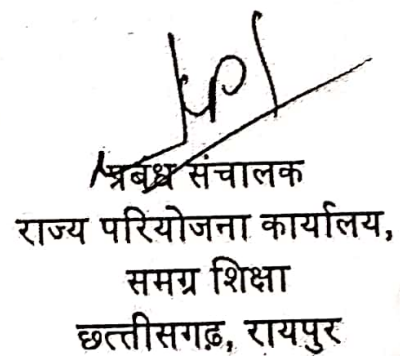 प्रबंध संचालक
राज्य परियोजना कार्यालय,
समग्र शिक्षा
छत्तीसगढ़, रायपुर